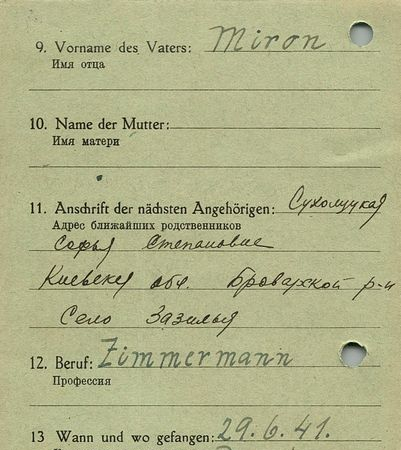 9. Vorname des Vaters: Miron
Имя отца
10. Name der Mutter:
Имя матери
11. Anschrift der nächsten Angehörigen: Сухолуцкая
Адрес ближайших родственников
Софья Степановне
Киевская обл. Броварской р-н
Село Зазимья
12. Beruf: Zimmermann
Профессия
13 Wann und wo gefangen: 29.6.41.